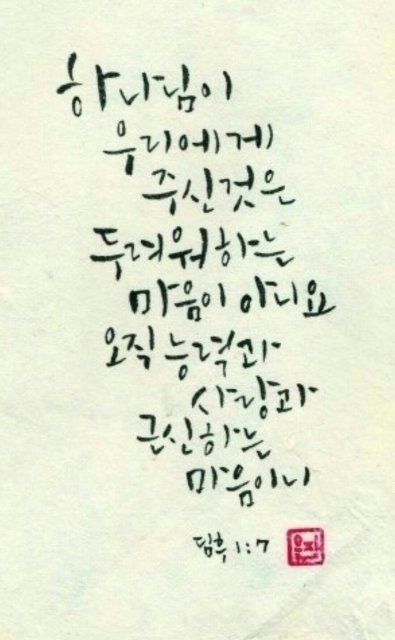 하나님이
우리에게
주신것은
두려워하는
마음이 아니요
오직 능력과
사랑과
근신하는
마음이니
딤후 1:7